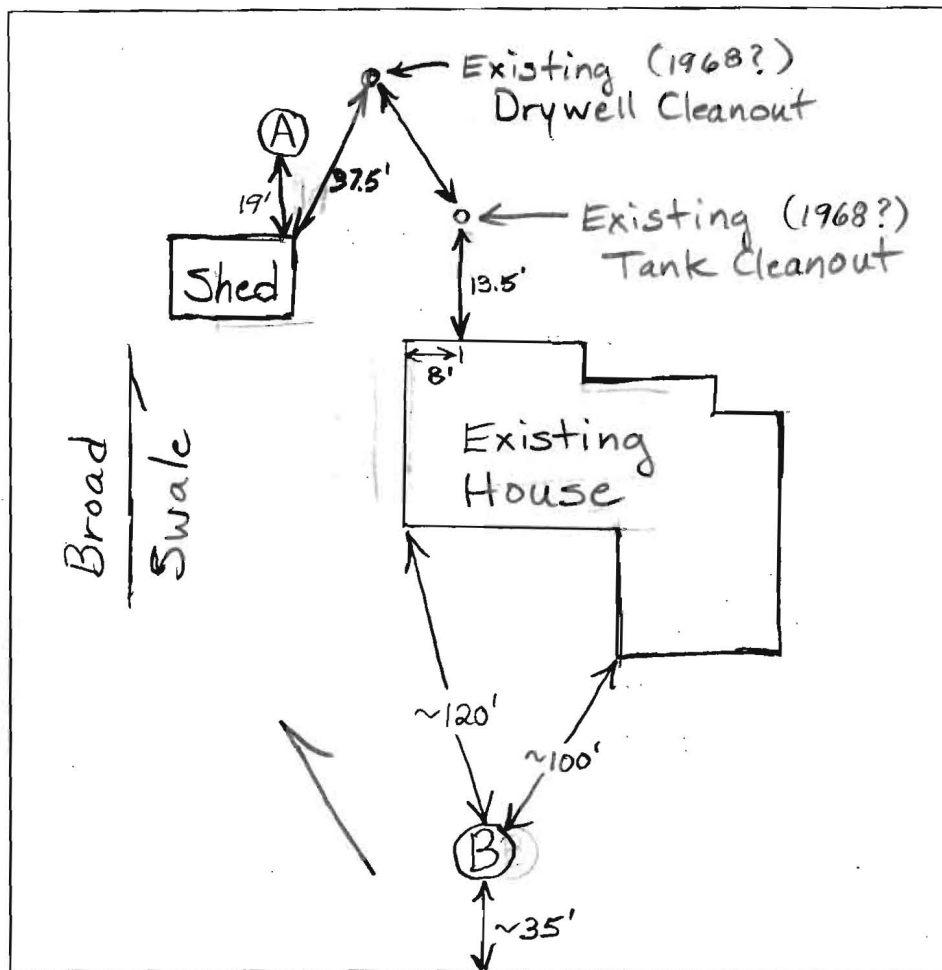 Existing (1968?)
Drywell Cleanout
A
37.5'
19'
Existing (1968?)
Tank Cleanout
Shed
13.5'
8'
Existing
House
Broad
Swale
~120'
~100'
B
~35'